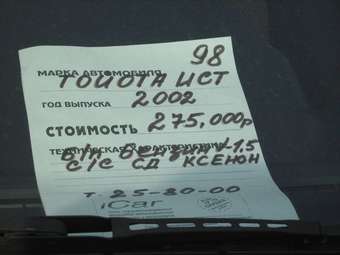 98
МАРКА АВТОМОБИЛЯ
ТОЙОТА ИСТ
ГОД ВЫПУСКА 2002
СТОИМОСТЬ 275,000р
ТЕХНИЧЕСКАЯ ХАРАКТЕРИСТИКА
Б/П БЕНЗИН 1.5
С/С СД КСЕНОН
т. 25-80-00
iCar